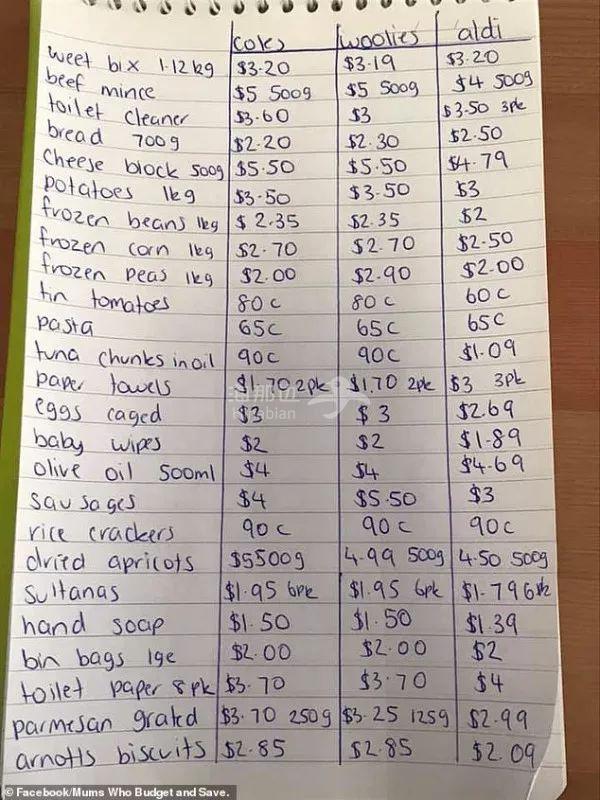 coles woolies aldi
weet bix 1.12kg $3.20 $3.19 $3.20
beef mince $5 500g $5 500g $4 500g
toilet cleaner $3.60 $3 $3.50 3pk
bread 700g $2.20 $2.30 $2.50
cheese block 500g $5.50 $5.50 $4.79
potatoes 1kg $3.50 $3.50 $3
frozen beans 1kg $2.35 $2.35 $2
frozen corn 1kg $2.70 $2.70 $2.50
frozen peas 1kg $2.00 $2.90 $2.00
tin tomatoes 80c 80c 60c
pasta 65c 65c 65c
tuna chunks in oil 90c 90c $1.09
paper towels $1.70 2pk $1.70 2pk $3 3pk
eggs caged $3 $3 $2.69
baby wipes $2 $2 $1.89
olive oil 500ml $4 $4 $4.69
sausages $4 $5.50 $3
rice crackers 90c 90c 90c
dried apricots $5500g 4.99 500g 4.50 500g
sultanas $1.95 6pk $1.95 6pk $1.79 6pk
hand soap $1.50 $1.50 $1.39
bin bags lge $2.00 $2.00 $2
toilet paper 8pk $3.70 $3.70 $4
parmesan grated $3.70 250g $3.25 125g $2.99
arnotts biscuits $2.85 $2.85 $2.09
© Facebook/Mums Who Budget and Save.